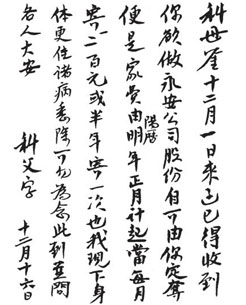 科母鉴十二月一日来函已得收到
你欲做永安公司股份自可由你定奪
便是家費由陽曆明年正月計起當每月
寄百元或半年寄一次也我現下身
体更佳諸病悉除勿為念此到並問
各人大安
科父字
十二月十六日